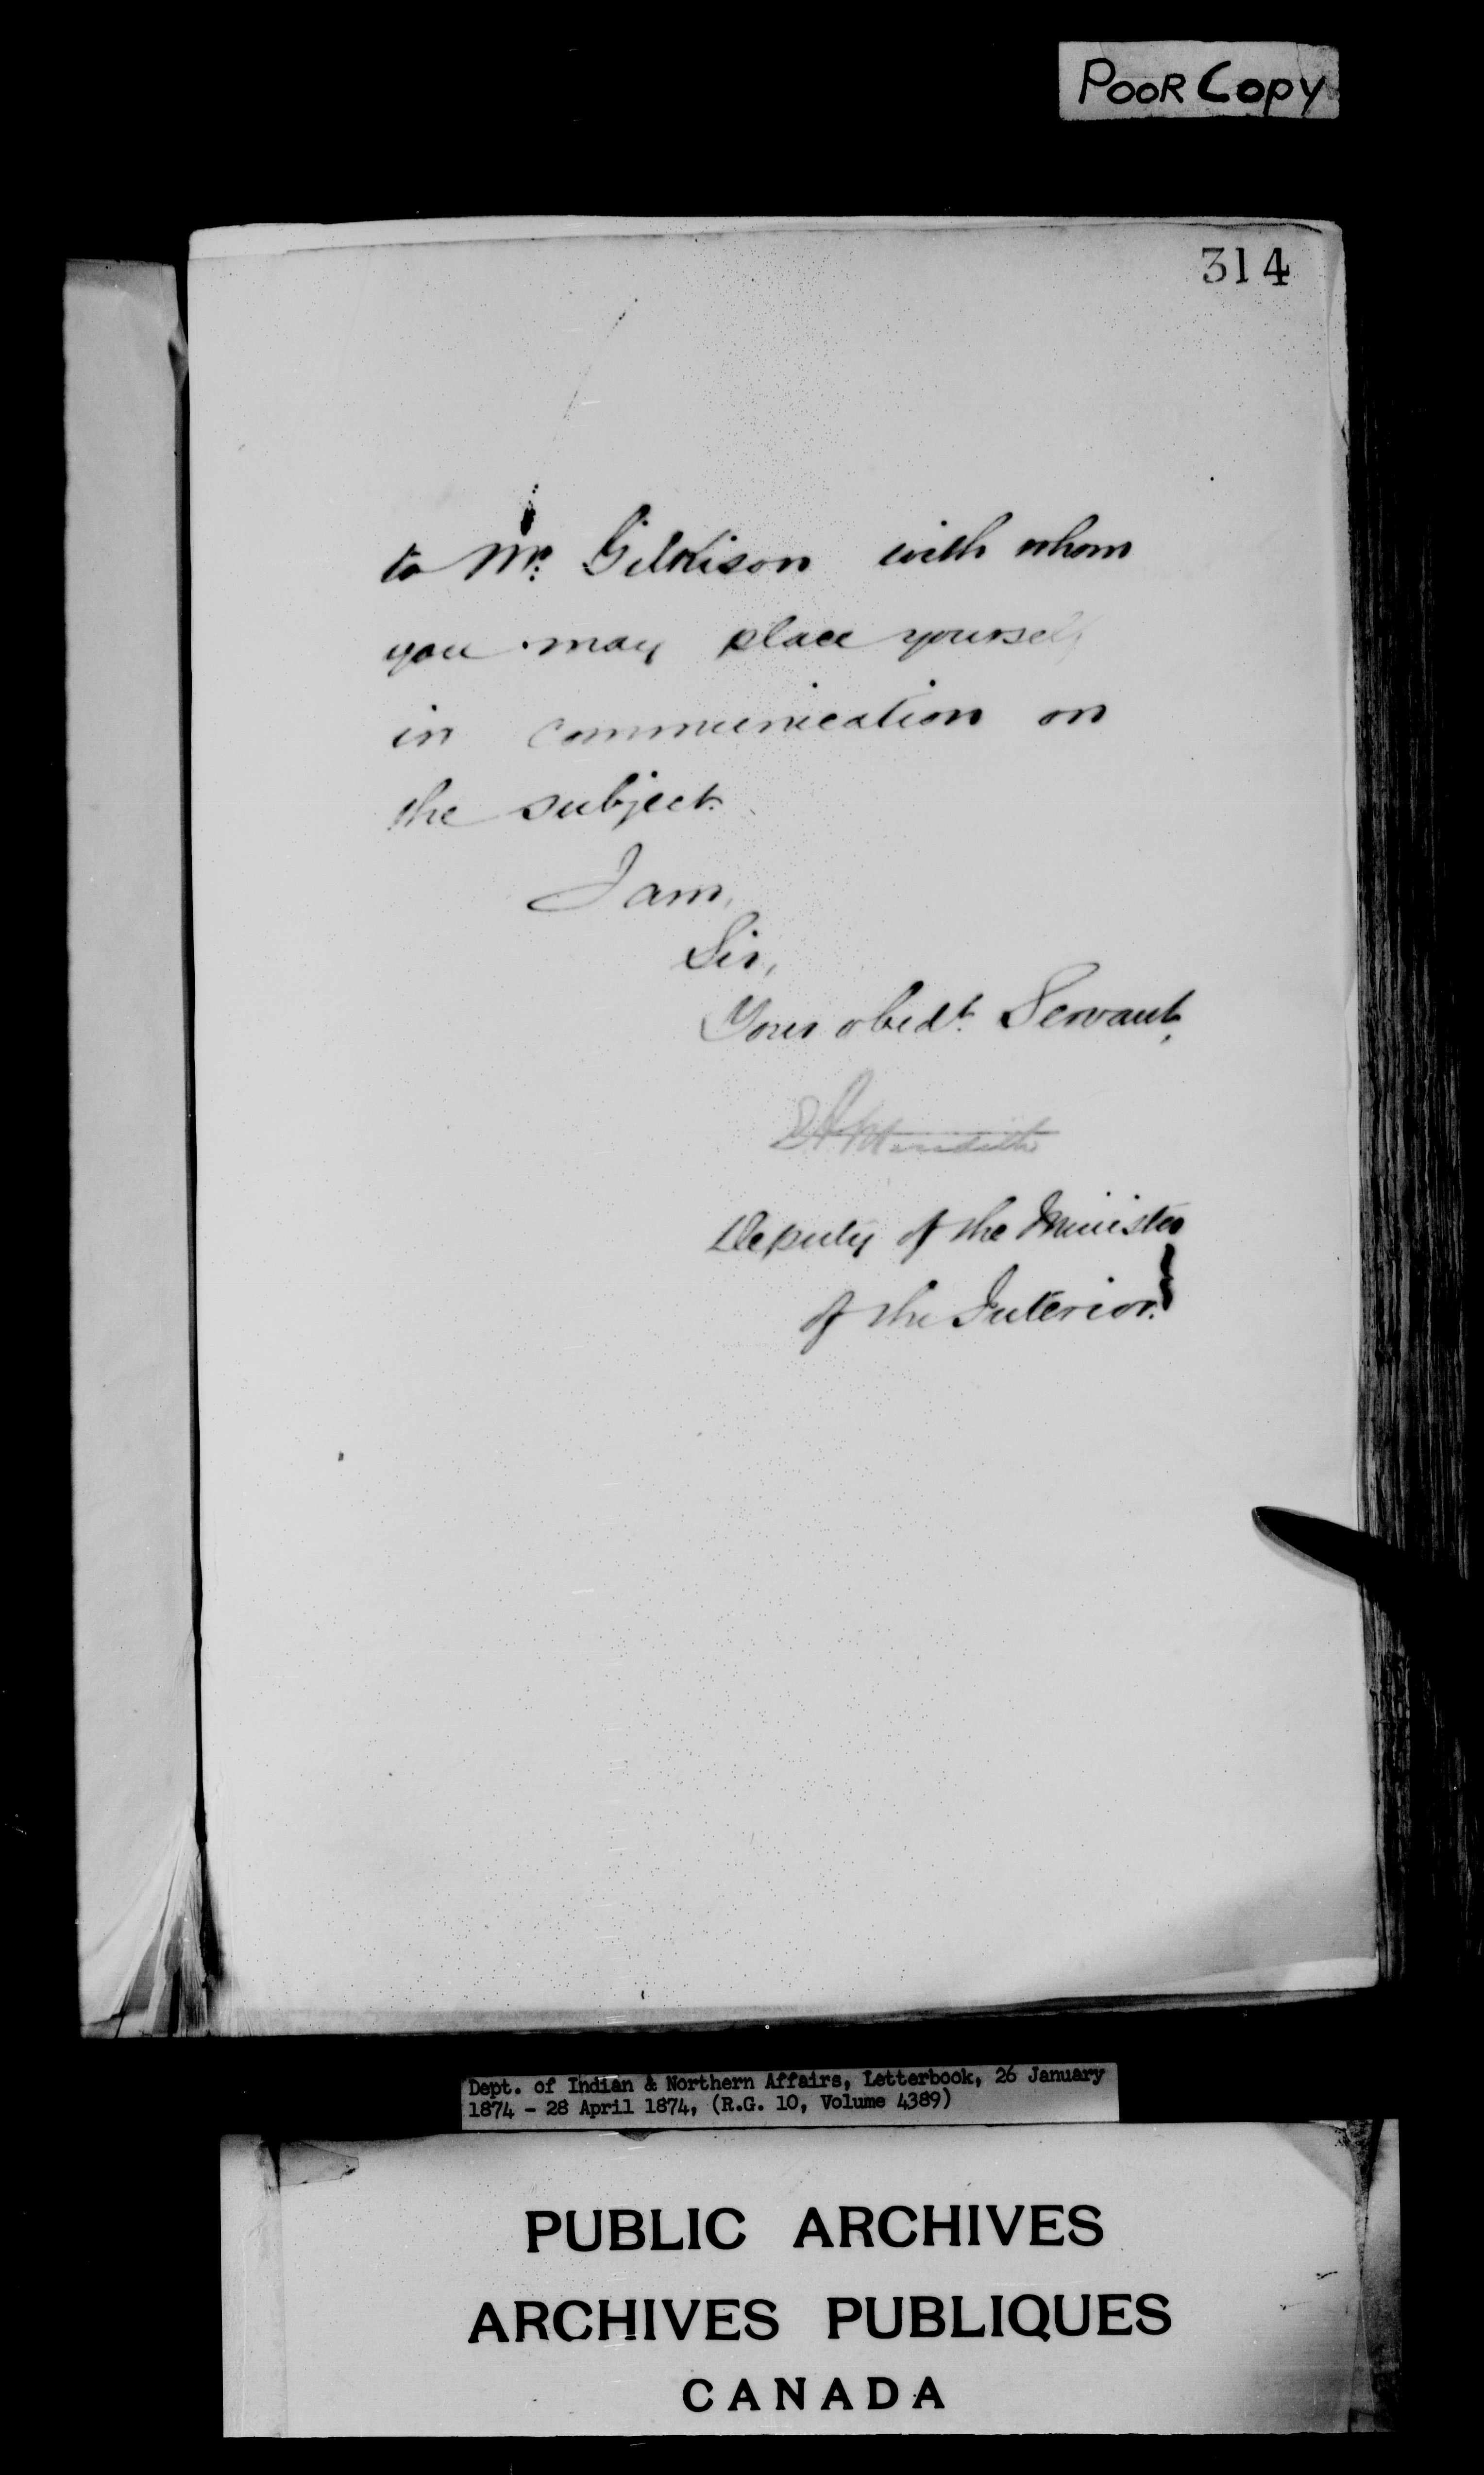 POOR COPY
314
to Mr. Gilkison with whom
you may place yourself
in communication on
the subject.
I am,
Sir,
Your obedt. Servant,
Meredith
Deputy of the Minister
of the Interior.
Dept. of Indian & Northern Affairs, Letterbook, 26 January
1874 - 28 April 1874, (R.G. 10, Volume 4389)
PUBLIC ARCHIVES
ARCHIVES PUBLIQUES
CANADA